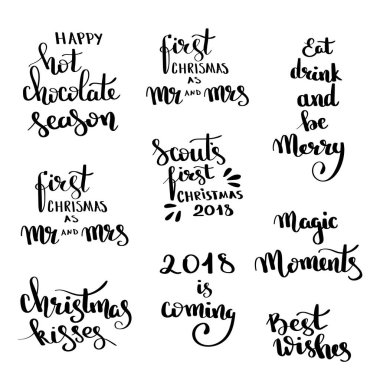 HAPPY
hot
chocolate
season
first
CHRISMAS
AS
Mr AND Mrs
Eat
drink
and
be
Merry
Scout's
first
CHRISTMAS
2018
first
CHRISMAS
AS
Mr AND Mrs
Magic
Moments
2018
is
coming
Christmas
kisses
Best
wishes